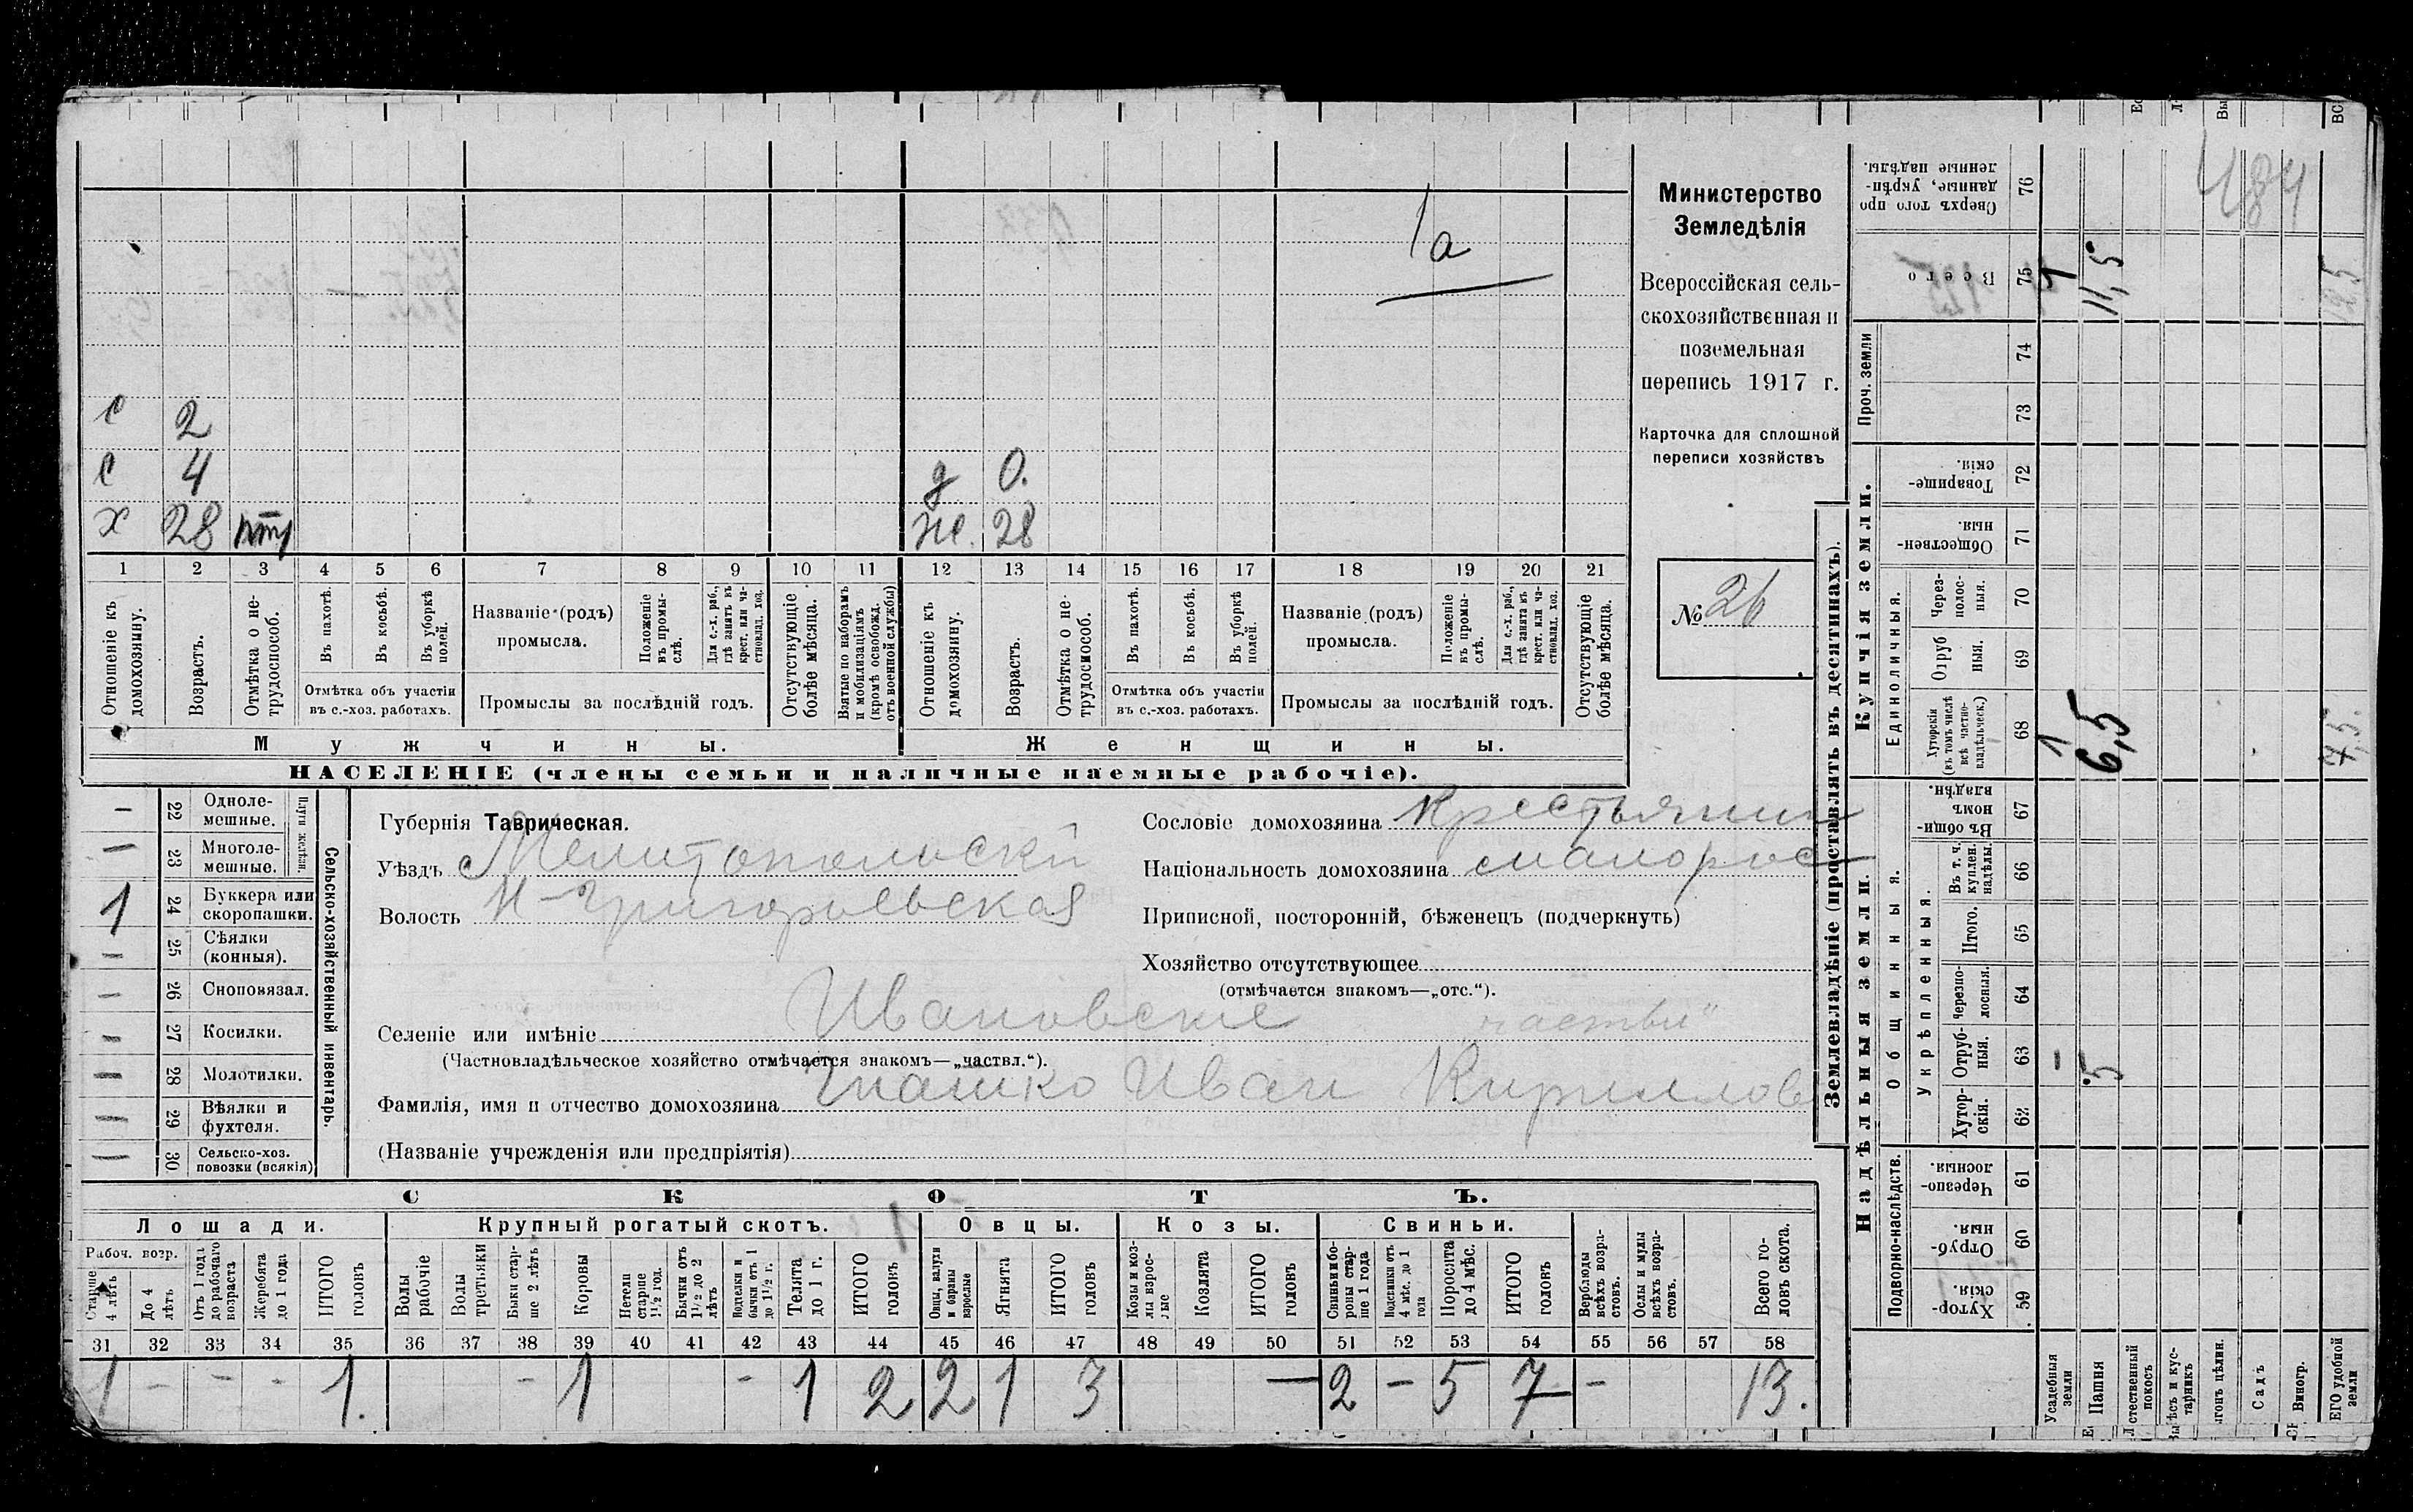 1а
Министерство
Земледѣлія
Всероссійская сель-
скохозяйственная и
поземельная
перепись 1917 г.
Карточка для сплошной
переписи хозяйствъ
№ 26
с 2
с 4 д 0.
х 28 Ж. 28
1 2 3 4 5 6 7 8 9 10 11 12 13 14 15 16 17 18 19 20 21
Отношеніе къ домохозяину.
Возрастъ.
Отмѣтка о не-трудоспособ.
Въ пахотѣ.
Въ косьбѣ.
Въ уборкѣ полей.
Отмѣтка объ участіи въ с.-хоз. работахъ.
Названіе (родъ) промысла.
Положеніе въ промы-слѣ.
Для с.-х. раб., гдѣ занятъ въ крест. или ча-стновлад. хоз.
Промыслы за послѣдній годъ.
Отсутствующіе болѣе мѣсяца.
Взятые по наборамъ и мобилизаціямъ (кромѣ освобожд. отъ военной службы)
Отношеніе къ домохозяину.
Возрастъ.
Отмѣтка о не-трудоспособ.
Въ пахотѣ.
Въ косьбѣ.
Въ уборкѣ полей.
Отмѣтка объ участіи въ с.-хоз. работахъ.
Названіе (родъ) промысла.
Положеніе въ промы-слѣ.
Для с.-х. раб., гдѣ занята въ крест. или ча-стновлад. хоз.
Промыслы за послѣдній годъ.
Отсутствующіе болѣе мѣсяца.
Мужчины. Женщины.
НАСЕЛЕНІЕ (члены семьи и наличные наемные рабочіе).
Сельско-хозяйственный инвентарь.
Плуги желѣзн.
— 22 Одноле-мешные.
— 23 Многоле-мешные.
1 24 Буккера или скоропашки.
— 25 Сѣялки (конныя).
— 26 Сноповязал.
— 27 Косилки.
— 28 Молотилки.
— 29 Вѣялки и фухтеля.
— 30 Сельско-хоз. повозки (всякія)
Губернія Таврическая.
Уѣздъ Мелитопольскій
Волость Н-Григорьевская
Сословіе домохозяина Крестьянин
Національность домохозяина малорос
Приписной, посторонній, бѣженецъ (подчеркнуть)
Хозяйство отсутствующее
(отмѣчается знакомъ—„отс.“).
Селеніе или имѣніе Ивановскіе
(Частновладѣльческое хозяйство отмѣчается знакомъ—„частвл.“).
Фамилія, имя и отчество домохозяина Иван Кириллов
(Названіе учрежденія или предпріятія)
СКОТЪ.
Лошади. Крупный рогатый скотъ. Овцы. Козы. Свиньи.
Рабоч. возр.
Старше 4 лѣтъ
До 4 лѣтъ
Отъ 1 года до рабочаго возраста
Жеребята до 1 года
ИТОГО головъ
Волы рабочіе
Волы третьяки
Быки стар-ше 2 лѣтъ
Коровы
Нетели старше 1½ год.
Бычки отъ 1½ до 2 лѣтъ
Подтелки и бычки отъ 1 до 1½ г.
Телята до 1 г.
ИТОГО головъ
Овцы, валухи и бараны взрослые
Ягнята
ИТОГО головъ
Козы и коз-лы взрос-лые
Козлята
ИТОГО головъ
Свиньи и бо-ровы стар-ше 1 года
Подсвинки отъ 4 мѣс. до 1 года
Поросята до 4 мѣс.
ИТОГО головъ
Верблюды всѣхъ возра-стовъ.
Ослы и мулы всѣхъ возра-стовъ.
Всего го-ловъ скота.
31 32 33 34 35 36 37 38 39 40 41 42 43 44 45 46 47 48 49 50 51 52 53 54 55 56 57 58
1 — — — 1. — 1 — 1 2 2 1 3 — 2 — 5 7 — 13.
Землевладѣніе (проставлять въ десятинахъ).
Надѣльныя земли. Купчія земли.
Проч. земли
Подворно-наслѣдств.
Общинныя.
Укрѣпленныя.
Единоличныя.
Хутор-скія. 59
Отруб-ныя. 60
Черезпо-лосныя. 61
Хутор-скія. 62
Отруб-ныя. 63
Черезпо-лосныя. 64
Итого. 65
Въ т. ч. куплен. надѣлы. 66
Въ общи-номъ владѣн. 67
Хуторскія (въ томъ числѣ всѣ частно-владѣльческ.) 68
Отруб ныя. 69
Через-полос-ныя. 70
Обществен-ныя. 71
Товарище-скія. 72
73
74
Всего 75
Сверхъ того про данные, укрѣп-ленные надѣлы. 76
Усадебныя земли — 1 1
Пашня 5 6,5 11,5
стественный покосъ
ѣсъ и кус-тарникъ
ыгонъ цѣлин.
Садъ
Виногр.
ЕГО удобной земли 7,5. 12,5
484